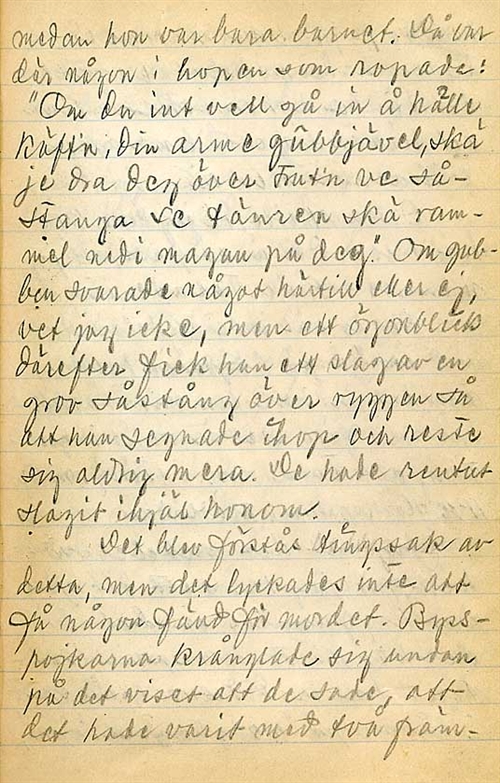 medan hon var bara barnet. Då var
där någon i hopen som ropade:
"Om du int vell gå in å hålle
käft'n, din arme gubbjävel, skä
je dra deg över trut'n ve så-
stanga se tänren skä ram-
mel nedi magan på deg". Om gub-
ben svarade något härtill eller ej,
vet jag icke, men ett ögonblick
därefter fick han ett slag av en
grov såstång över ryggen så
att han segnade ihop och reste
sig aldrig mera. De hade rentut
slagit ihjäl honom.
Det blev förstås tingssak av
detta, men det lyckades inte att
få någon fäld för mordet. Byss-
pojkarna krånglade sig undan
på det viset att de sade, att
det hade varit med två främ-